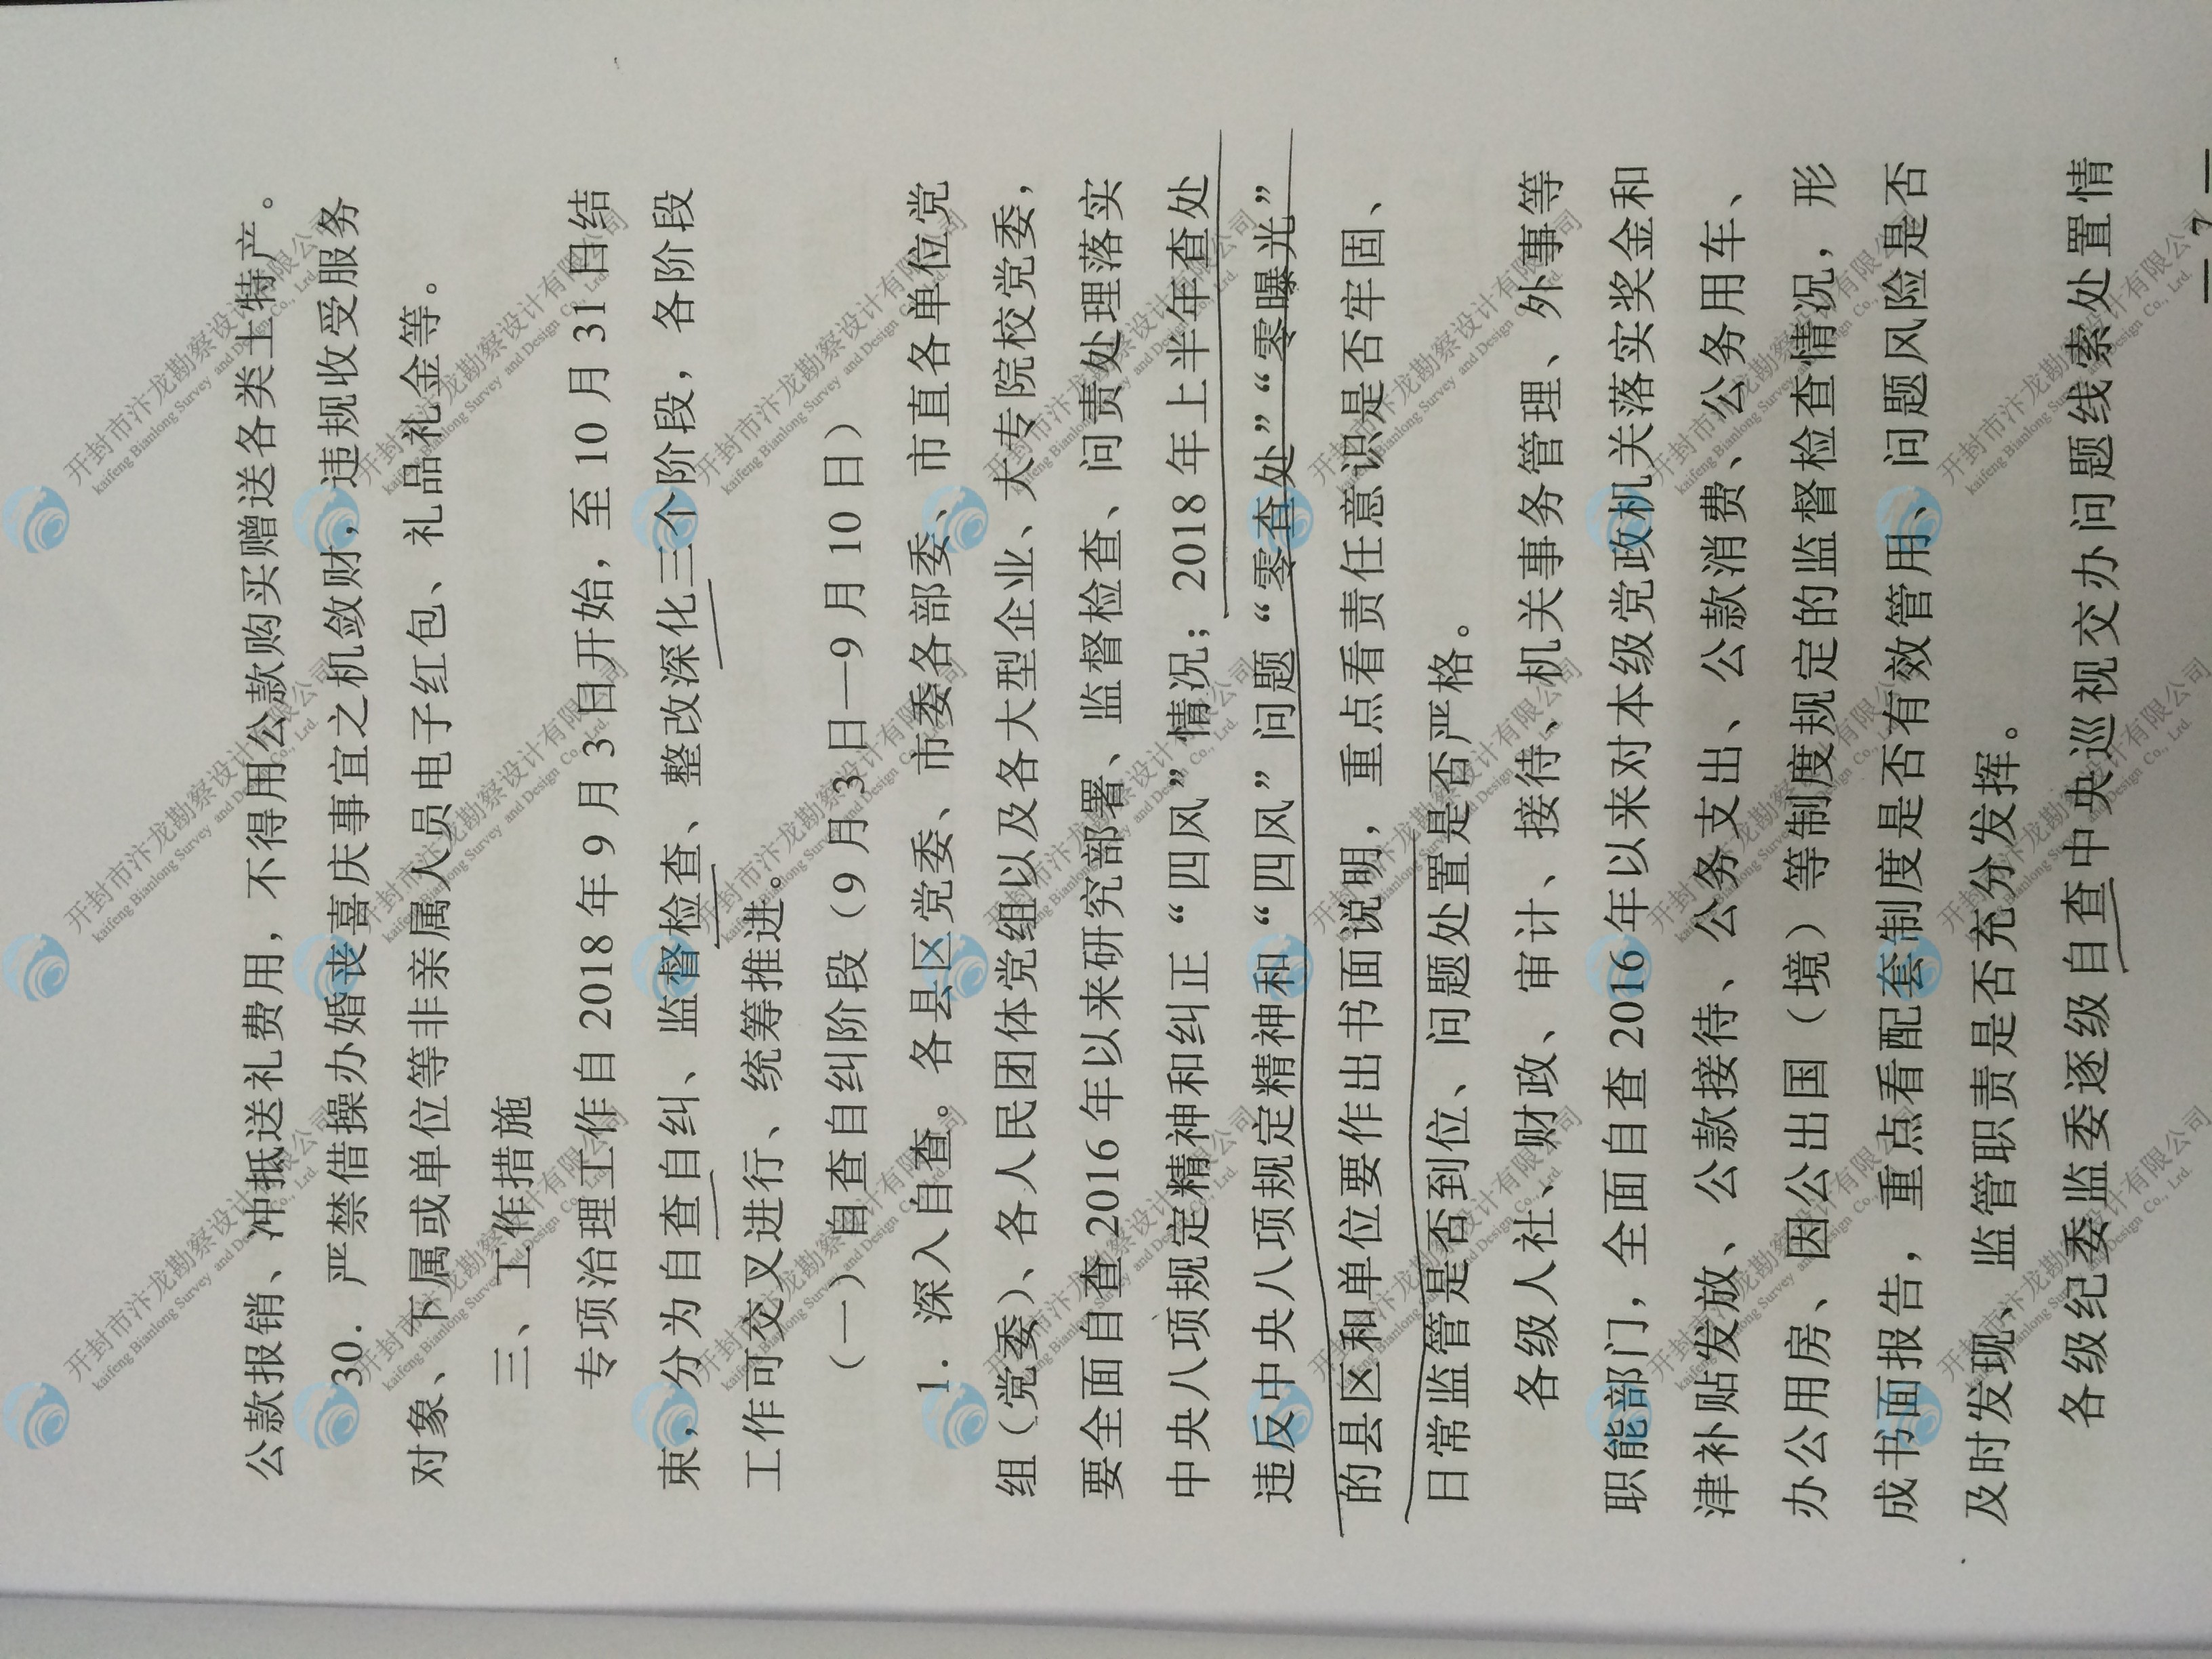 公款报销、冲抵送礼费用，不得用公款购买赠送各类土特产。
30．严禁借操办婚丧喜庆事宜之机敛财，违规收受服务
对象、下属或单位等非亲属人员电子红包、礼品礼金等。
三、工作措施
专项治理工作自 2018 年 9 月 3 日开始，至 10 月 31 日结
束，分为自查自纠、监督检查、整改深化三个阶段，各阶段
工作可交叉进行、统筹推进。
（一）自查自纠阶段（9 月 3 日—9 月 10 日）
1．深入自查。各县区党委、市委各部委、市直各单位党
组（党委）、各人民团体党组以及各大型企业、大专院校党委，
要全面自查 2016 年以来研究部署、监督检查、问责处理落实
中央八项规定精神和纠正“四风”情况；2018 年上半年查处
违反中央八项规定精神和“四风”问题“零查处”“零曝光”
的县区和单位要作出书面说明，重点看责任意识是否牢固、
日常监管是否到位、问题处置是否严格。
各级人社、财政、审计、接待、机关事务管理、外事等
职能部门，全面自查 2016 年以来对本级党政机关落实奖金和
津补贴发放、公款接待、公务支出、公款消费、公务用车、
办公用房、因公出国（境）等制度规定的监督检查情况，形
成书面报告，重点看配套制度是否有效管用、问题风险是否
及时发现、监管职责是否充分发挥。
各级纪委监委逐级自查中央巡视交办问题线索处置情
开封市汴龙勘察设计有限公司
kaifeng Bianlong Survey and Design Co., Ltd.